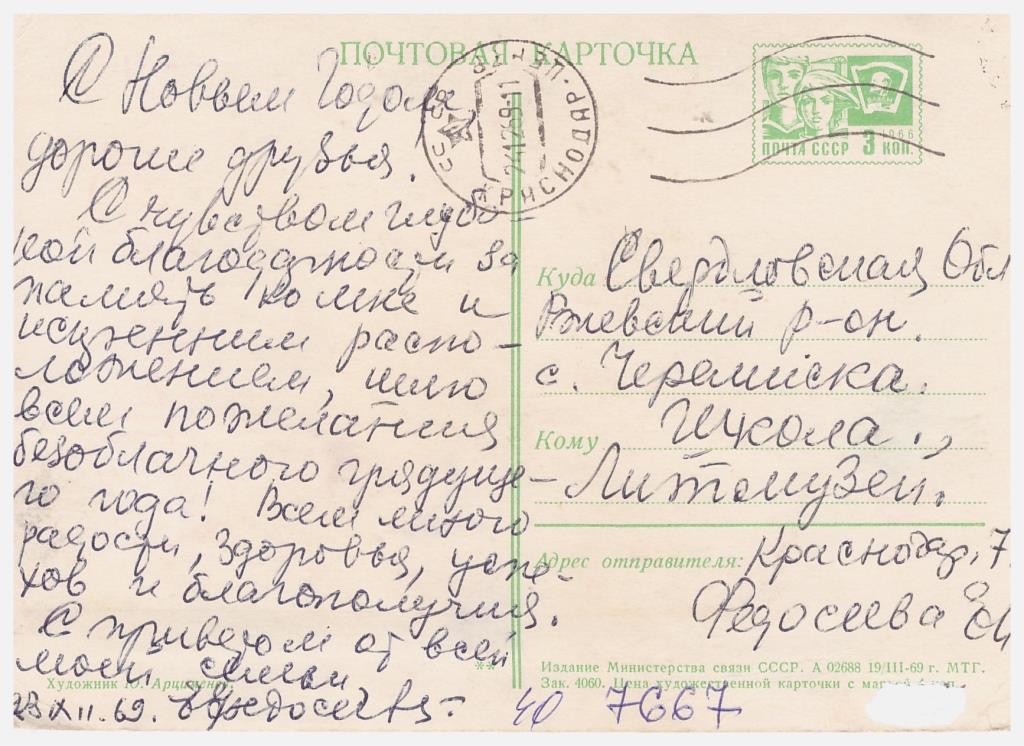 ПОЧТОВАЯ КАРТОЧКА
С Новым Годом,
дорогие друзья!
С чувством глубо
кой благодарности за
память ко мне и
искренним распо-
ложением, шлю
всем пожелания
безоблачного грядуще-
го года! Всем много
радости, здоровья, успе-
хов и благополучия.
С приветом от всей
моей семьи
23 XII. 69.
Художник Ю. Арцименев
СССР
24 12 69 - 11
КРАСНОДАР
1966
ПОЧТА СССР 3 КОП
Куда Свердловская Обл
Режевский р-он.
с. Черемиска.
Кому Школа.,
Литмузей.
Адрес отправителя: Краснодар, 7
Федосеева
**
Издание Министерства связи СССР. А 02688 19/III-69 г. МТГ.
Зак. 4060. Цена художественной карточки с маркой 4 коп.
7667